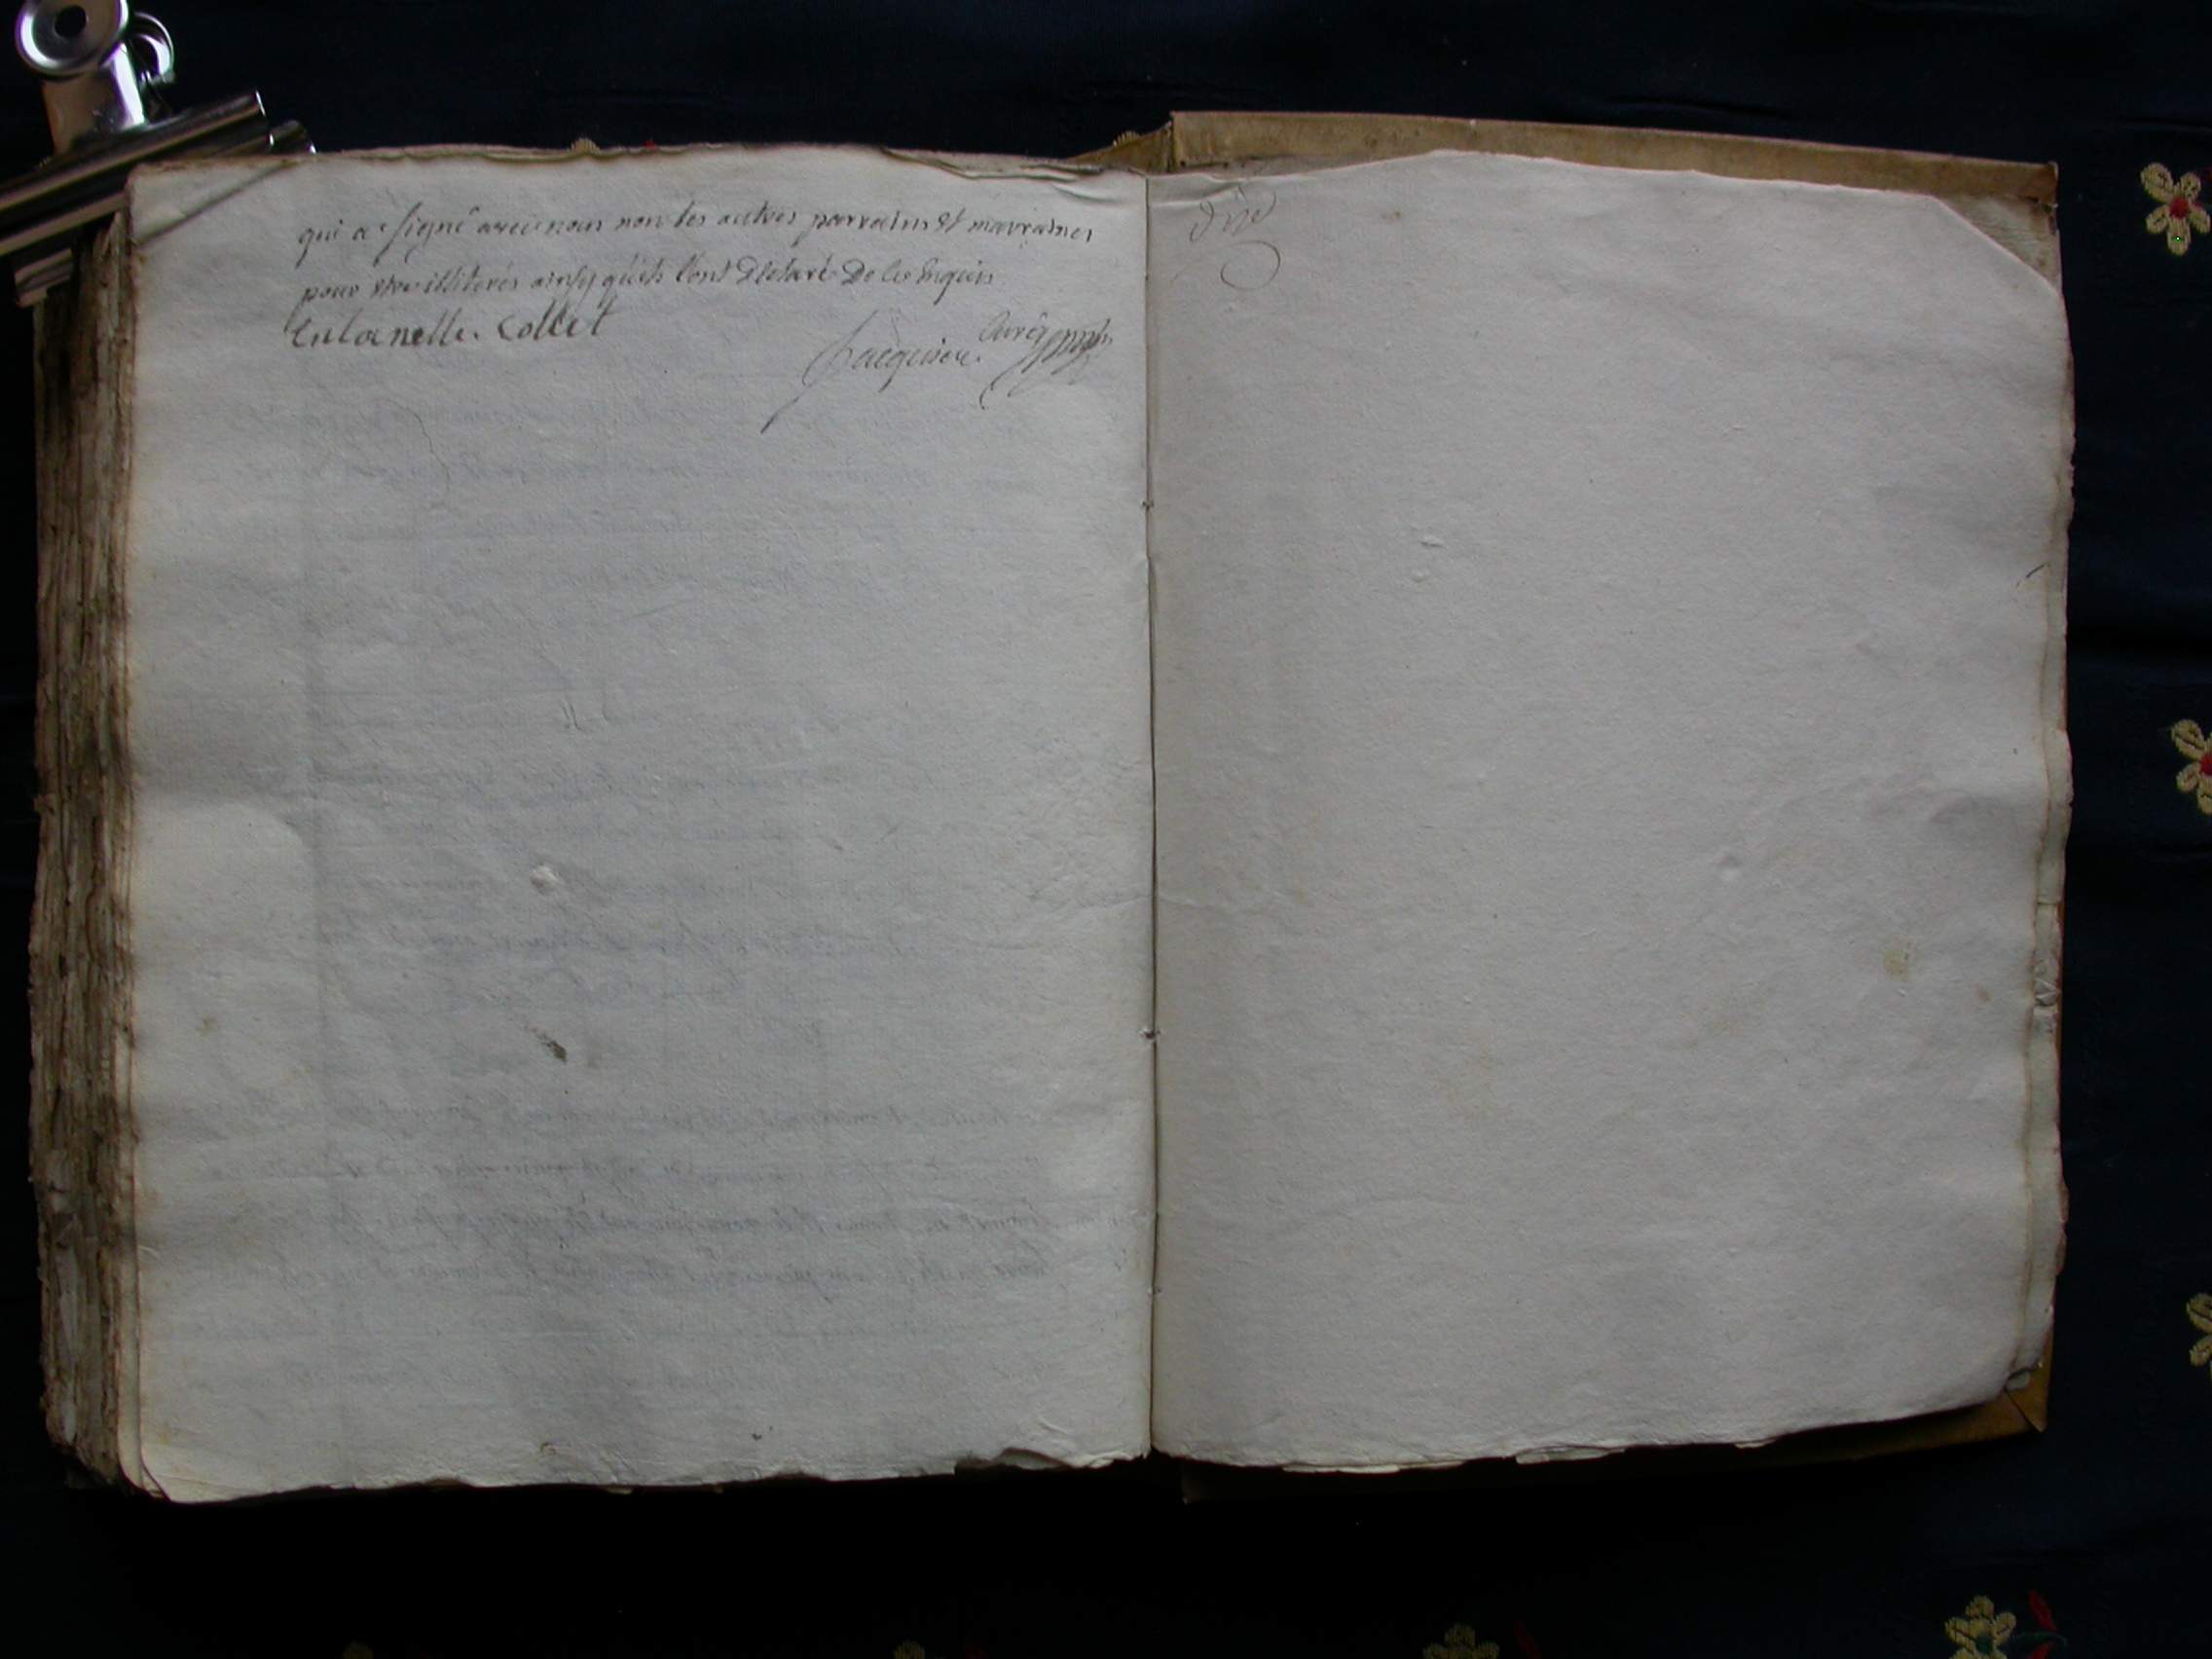 qui a signé avec nous non les autres parrains et marraines
pour etre illiterés ainsy qu'ils l'ont declaré de ce enquis
antoinette Collet
Jacquier Curé